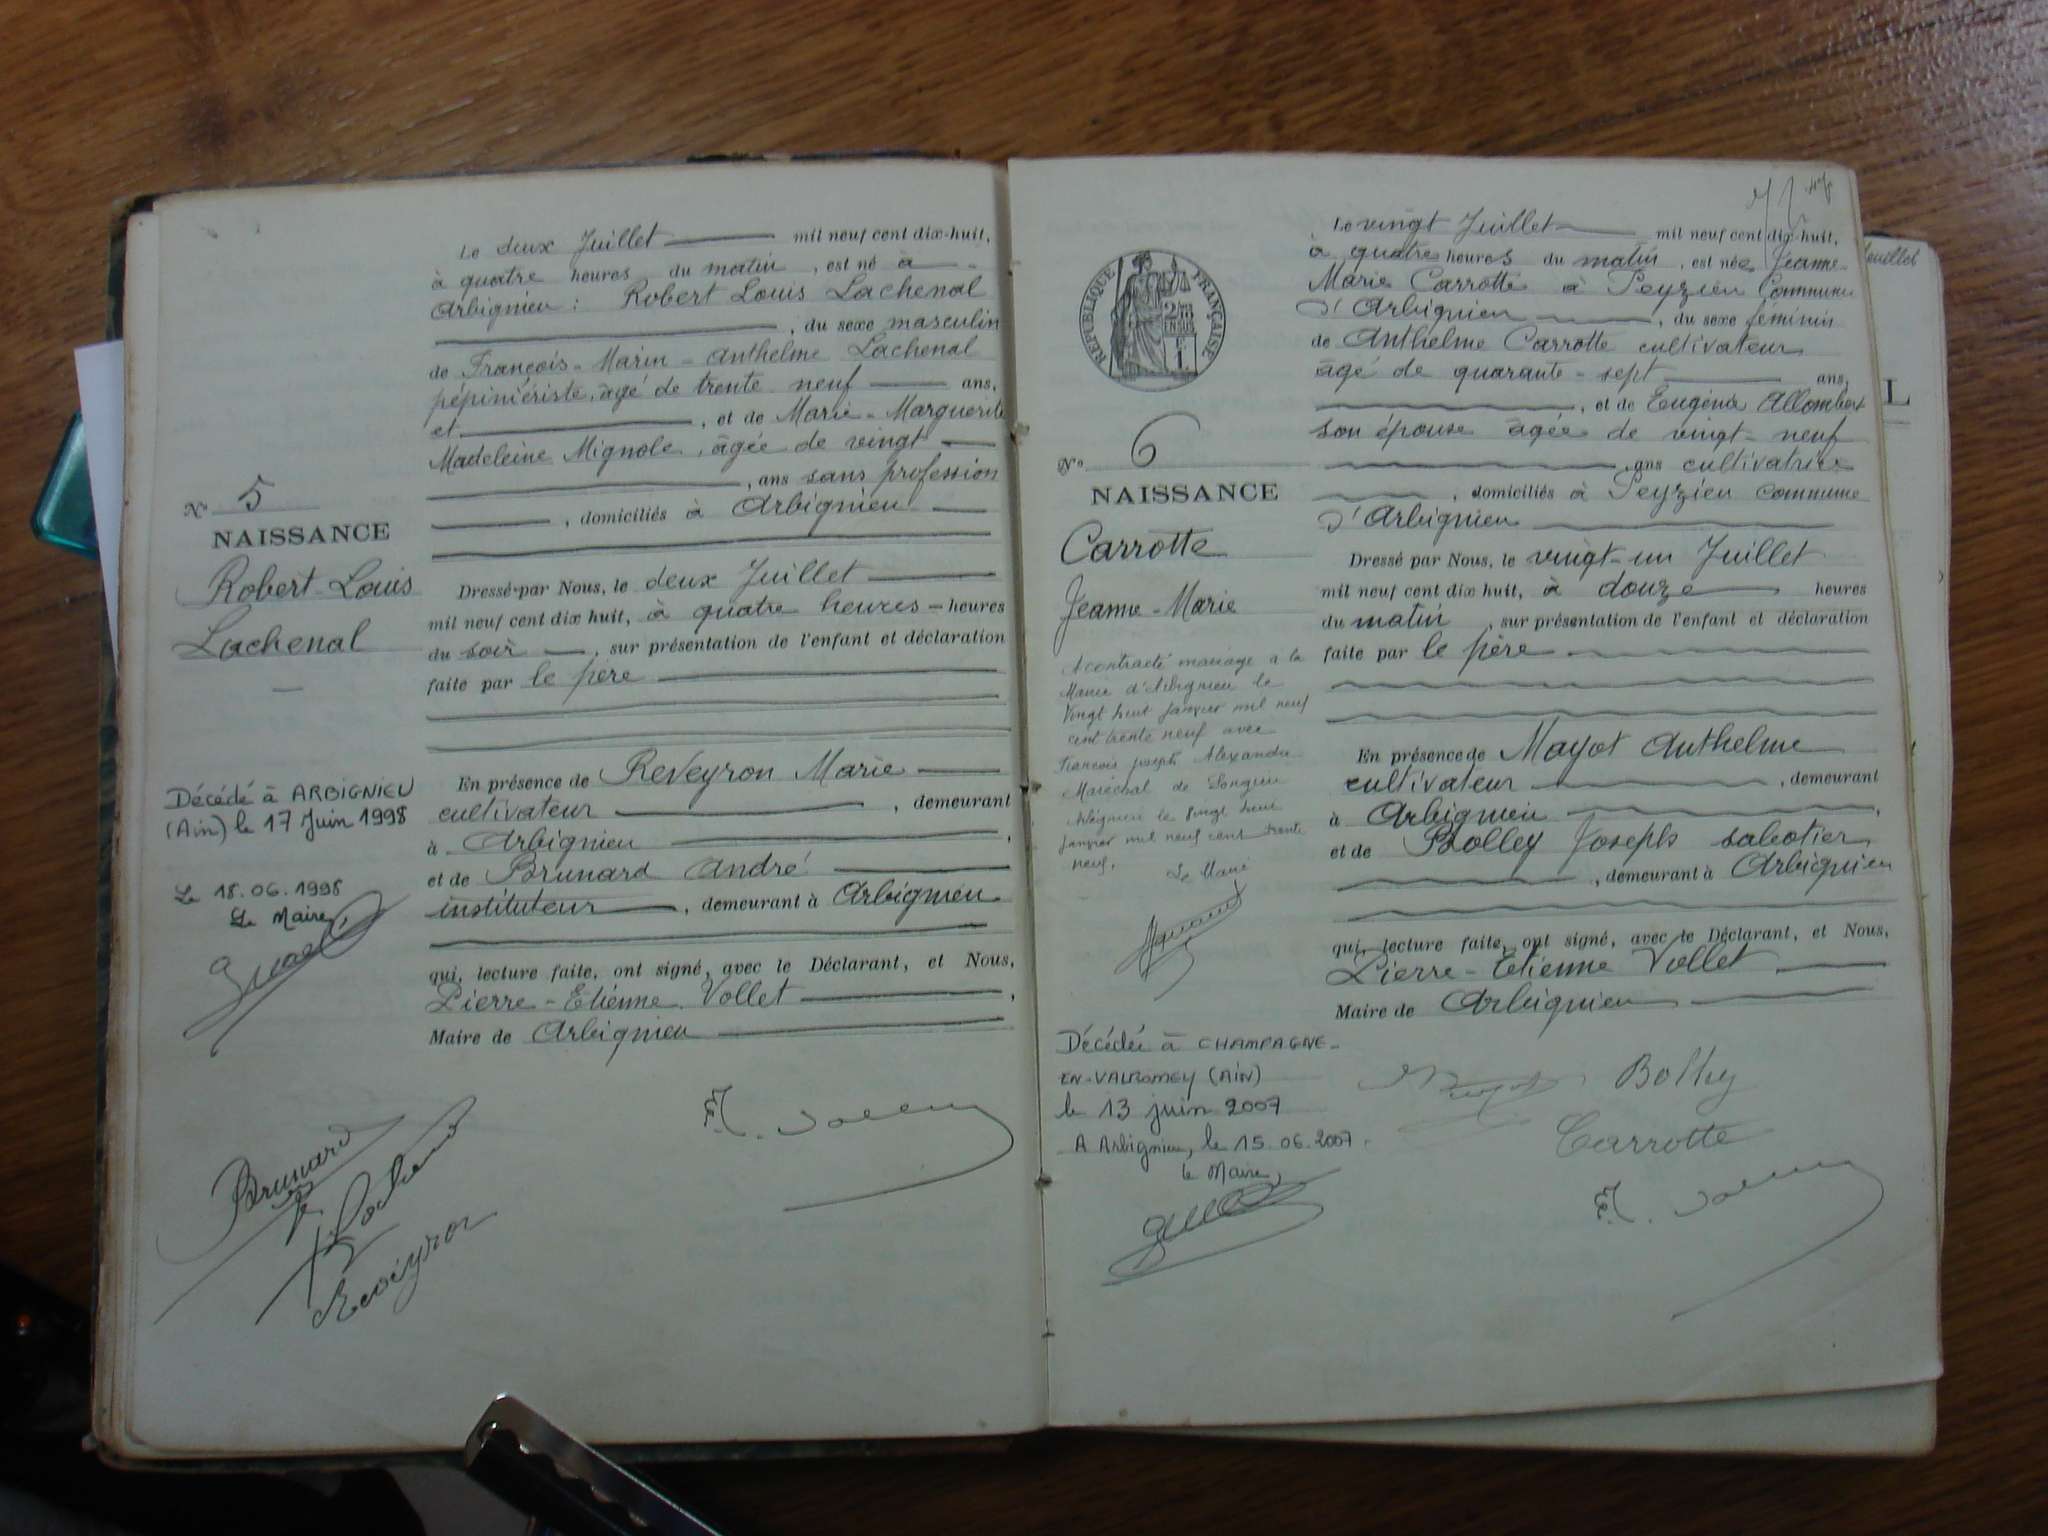 Le deux Juillet mil neuf cent dix-huit,
à quatre heures du matin, est né à
Arbignieu : Robert Louis Lachenal
, du sexe masculin
de François-Marin-Anthelme Lachenal
pépiniériste, âgé de trente neuf ans,
et , et de Marie-Marguerite
Madeleine Mignole, âgée de vingt
, ans sans profession
, domiciliés à Arbignieu
N° 5
NAISSANCE
Robert-Louis
Lachenal
Dressé par Nous, le deux Juillet
mil neuf cent dix huit, à quatre heures - heures
du soir, sur présentation de l'enfant et déclaration
faite par le père
Décédé à ARBIGNIEU
(Ain) le 17 Juin 1998
Le 18.06.1998
Le Maire,
En présence de Reveyron Marie
cultivateur , demeurant
à Arbignieu ,
et de Brunard André
instituteur , demeurant à Arbignieu
qui, lecture faite, ont signé, avec le Déclarant, et Nous,
Pierre-Etienne Vollet ,
Maire de Arbignieu
Brunard
Lachenal
Reveyron
71
Le vingt Juillet mil neuf cent dix-huit,
à quatre heures du matin, est née Jeanne-
Marie Carrotte à Peyzieu Commune
d'Arbignieu , du sexe féminin
de Anthelme Carrotte cultivateur
âgé de quarante-sept ans,
, et de Eugénie Allombert
son épouse âgée de vingt-neuf
, ans cultivatrice
, domiciliés à Peyzieu commune
d'Arbignieu
RÉPUBLIQUE FRANÇAISE
N° 6
NAISSANCE
Carrotte
Jeanne-Marie
A contracté mariage à la
Mairie d'Arbignieu le
Vingt huit janvier mil neuf
cent trente neuf avec
François Joseph Alexandre
Maréchal de
Arbignieu le vingt huit
janvier mil neuf cent trente
neuf.
Le Maire
Décédée à CHAMPAGNE-
EN-VALROMEY (AIN)
le 13 juin 2007
A Arbignieu, le 15.06.2007.
le Maire,
Dressé par Nous, le vingt-un Juillet
mil neuf cent dix huit, à douze heures
du matin, sur présentation de l'enfant et déclaration
faite par le père
En présence de Mayot Anthelme
cultivateur , demeurant
à Arbignieu ,
et de Bolley Joseph sabotier
, demeurant à Arbignieu
qui, lecture faite, ont signé, avec le Déclarant, et Nous,
Pierre-Etienne Vollet
Maire de Arbignieu
Bolley
Carrotte
feuillet
L